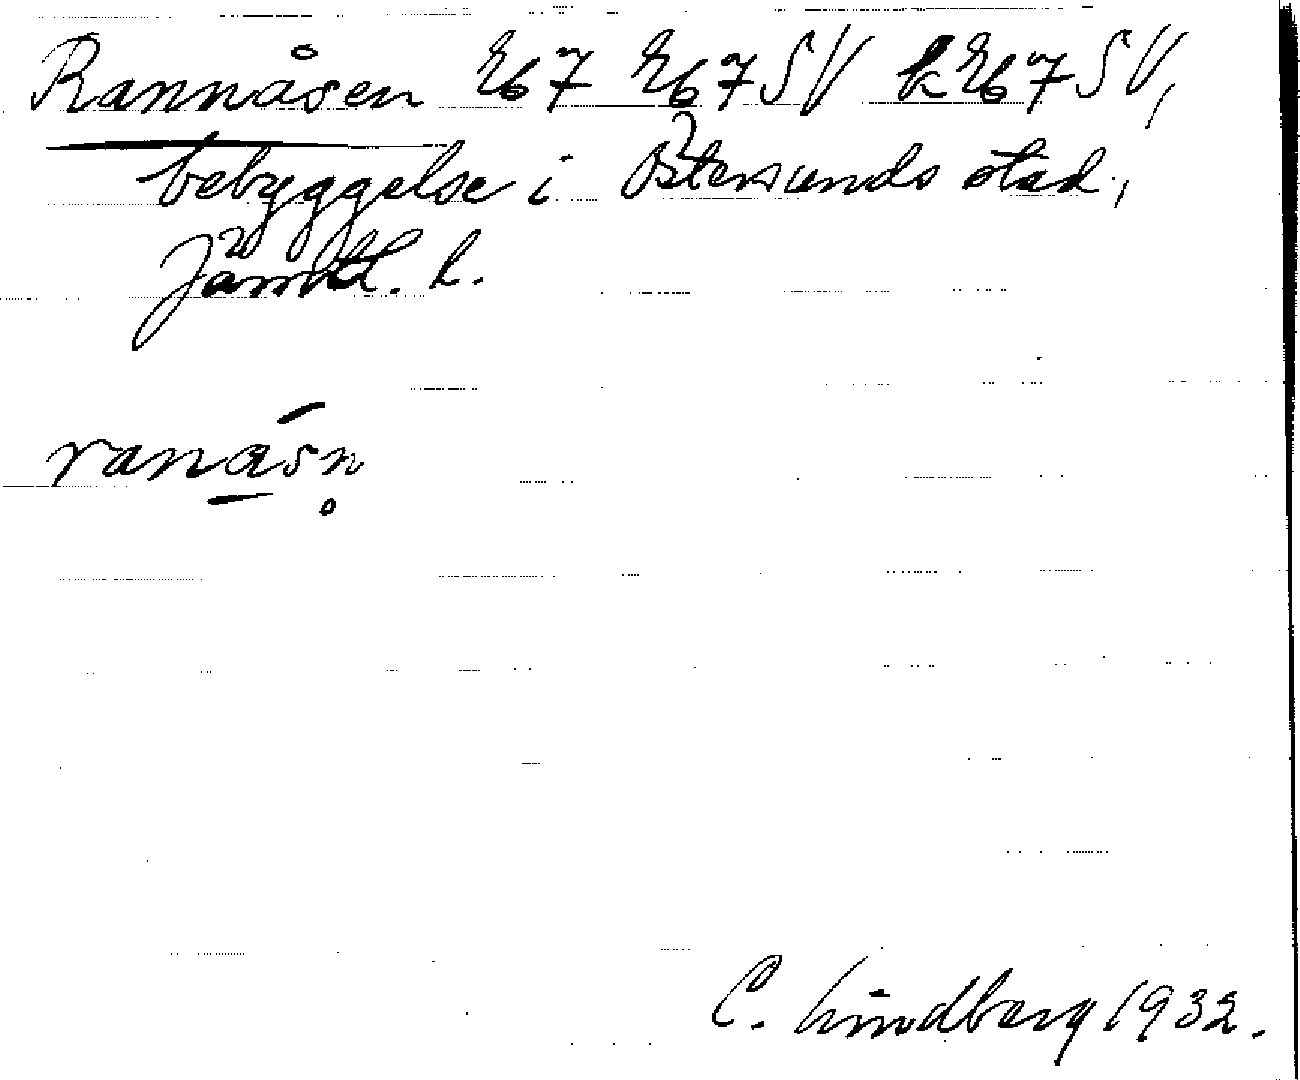 Rannåsen 2b7 2b7SV k2b7SV,
bebyggelse i Östersunds stad,
Jämtl. l.
ranåsn̥
C. Lindberg 1932.